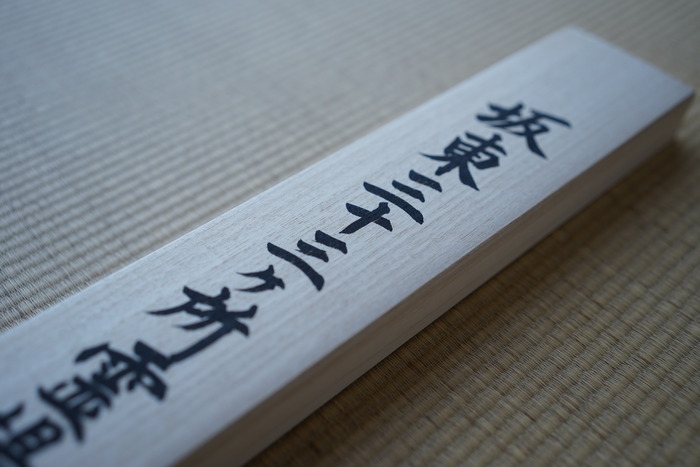 坂東三十三ヶ所霊場